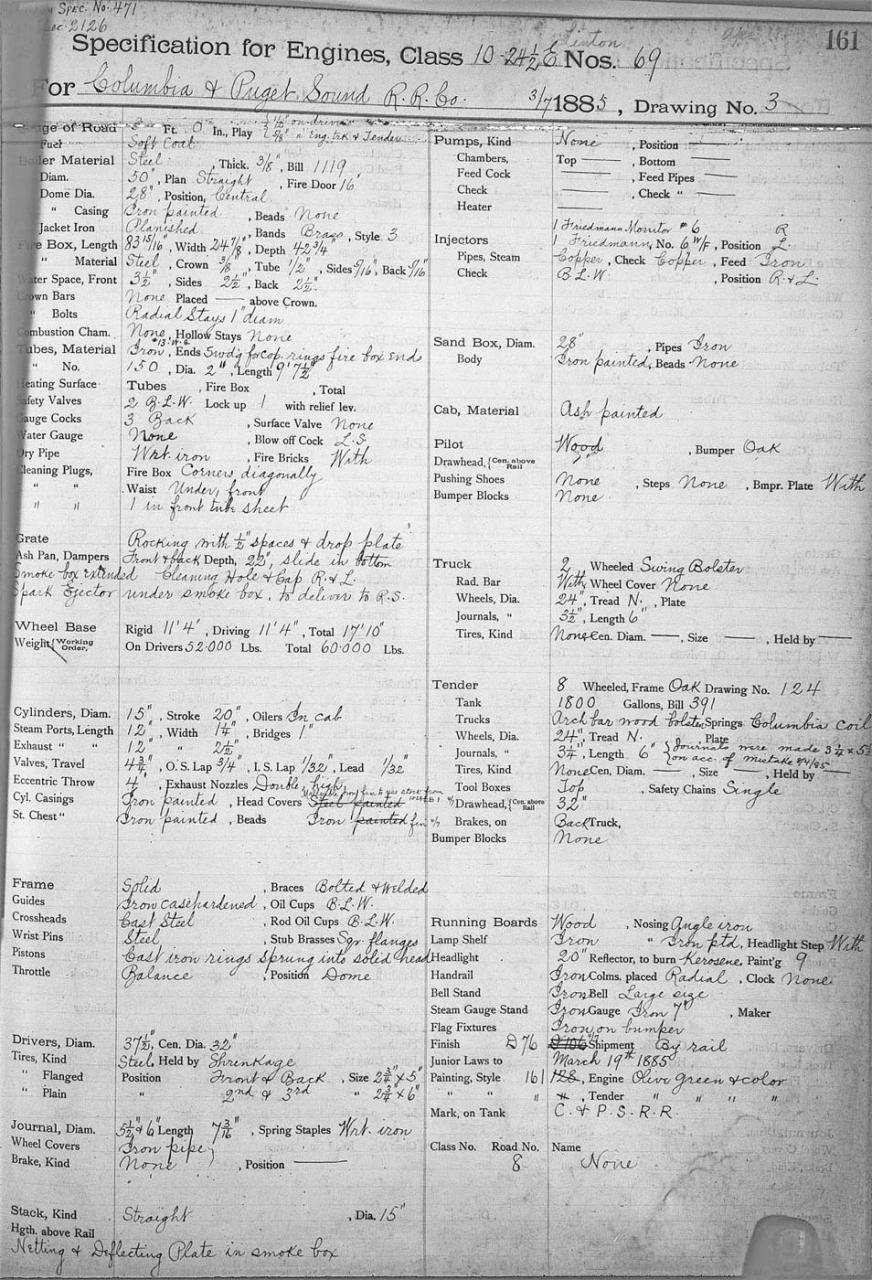 Spec. No. 471
2126
161
Specification for Engines, Class 10-24½ E Nos. 69
For Columbia & Puget Sound R.R.Co. 3/7 1885, Drawing No. 3
Gauge of Road Ft. 0 In., Play
Fuel Soft Coal
Boiler Material Steel, Thick. 3/8", Bill 1119
Diam. 50", Plan Straight, Fire Door 16"
Dome Dia. 28", Position, Central
" Casing Iron painted, Beads None
Jacket Iron Planished, Bands Brass, Style 3
Fire Box, Length 83 15/16", Width 24 7/8, Depth 42 3/4"
" Material Steel, Crown 3/8, Tube 1/2", Sides 5/16", Back 5/16"
Water Space, Front 3½", Sides 2½", Back 2½"
Crown Bars None Placed — above Crown.
" Bolts Radial Stays 1" diam
Combustion Cham. None, Hollow Stays None
Tubes, Material Iron, #13 W.G. Ends Swd'g for cop. rings fire box ends
" No. 150, Dia. 2", Length 9' 7½"
Heating Surface Tubes, Fire Box, Total
Safety Valves 2 B.L.W. Lock up 1 with relief lev.
Gauge Cocks 3 Back, Surface Valve None
Water Gauge None, Blow off Cock L.S.
Dry Pipe Wrt. iron, Fire Bricks With
Cleaning Plugs, Fire Box Corners, diagonally
" " Waist Under, front
" " 1 in front tube sheet
Grate Rocking with ½" spaces & drop plate
Ash Pan, Dampers Front & back Depth, 22", slide in bottom
Smoke box extended Cleaning Hole & Cap R. & L.
Spark Ejector under smoke box, to deliver to R.S.
Wheel Base Rigid 11' 4", Driving 11' 4", Total 17' 10"
Weight {Working Order, On Drivers 52.000 Lbs. Total 60.000 Lbs.
Cylinders, Diam. 15", Stroke 20", Oilers In cab
Steam Ports, Length 12", Width 1¼", Bridges 1"
Exhaust " " 12" " 2½"
Valves, Travel 4¾", O. S. Lap 3/4", I. S. Lap 1/32", Lead 1/32"
Eccentric Throw 4", Exhaust Nozzles Double high
Cyl. Casings Iron painted, Head Covers Steel painted
St. Chest " Iron painted, Beads Iron painted
Frame Solid, Braces Bolted & Welded
Guides Iron casehardened, Oil Cups B.L.W.
Crossheads Cast Steel, Rod Oil Cups B.L.W.
Wrist Pins Steel, Stub Brasses Sqr. flanges
Pistons Cast iron rings sprung into solid head
Throttle Balance, Position Dome
Drivers, Diam. 37½", Cen. Dia. 32"
Tires, Kind Steel, Held by Shrinkage
" Flanged Position Front & Back, Size 2¾" x 5"
" Plain " 2nd & 3rd " 2¾" x 6"
Journal, Diam. 5½" & 6" Length 7 3/16", Spring Staples Wrt. iron
Wheel Covers Iron pipe
Brake, Kind None, Position —
Stack, Kind Straight, Dia. 15"
Hgth. above Rail
Netting & Deflecting Plate in smoke box
Pumps, Kind None, Position —
Chambers, Top —, Bottom —
Feed Cock —, Feed Pipes —
Check —, Check " —
Heater —
1 Friedmann Monitor #6 R
Injectors 1 Friedmann, No. 6 W/F, Position L.
Pipes, Steam Copper, Check Copper, Feed Iron
Check B.L.W., Position R. & L.
Sand Box, Diam. 28", Pipes Iron
Body Iron painted, Beads None
Cab, Material Ash painted
Pilot Wood, Bumper Oak
Drawhead, {Cen. above Rail
Pushing Shoes None, Steps None, Bmpr. Plate With
Bumper Blocks None
Truck 2, Wheeled Swing Bolster
Rad. Bar With, Wheel Cover None
Wheels, Dia. 24", Tread N., Plate
Journals, " 3½", Length 6"
Tires, Kind None Cen. Diam. —, Size —, Held by —
Tender 8 Wheeled, Frame Oak Drawing No. 124
Tank 1800 Gallons, Bill 391
Trucks Arch bar wood bolster, Springs Columbia coil
Wheels, Dia. 24", Tread N., Plate
Journals, " 3¼", Length 6" {Journals were made 3¼ x 5½ on acc. of mistake
Tires, Kind None Cen. Diam. —, Size —, Held by —
Tool Boxes Top, Safety Chains Single
Drawhead, {Cen. above Rail 32"
Brakes, on Back Truck,
Bumper Blocks None
Running Boards Wood, Nosing Angle iron
Lamp Shelf Iron " Iron ptd, Headlight Step With
Headlight 20" Reflector, to burn Kerosene, Paint'g 9
Handrail Iron Colms. placed Radial, Clock None
Bell Stand Iron Bell Large size
Steam Gauge Stand Iron Gauge Iron 7", Maker
Flag Fixtures Iron, on bumper
Finish D 76 Shipment By rail
Junior Laws to March 19th 1885
Painting, Style 161 128, Engine Olive Green & color
" " " ", Tender " " " "
Mark, on Tank C. & P. S. R. R.
Class No. Road No. Name
8 None